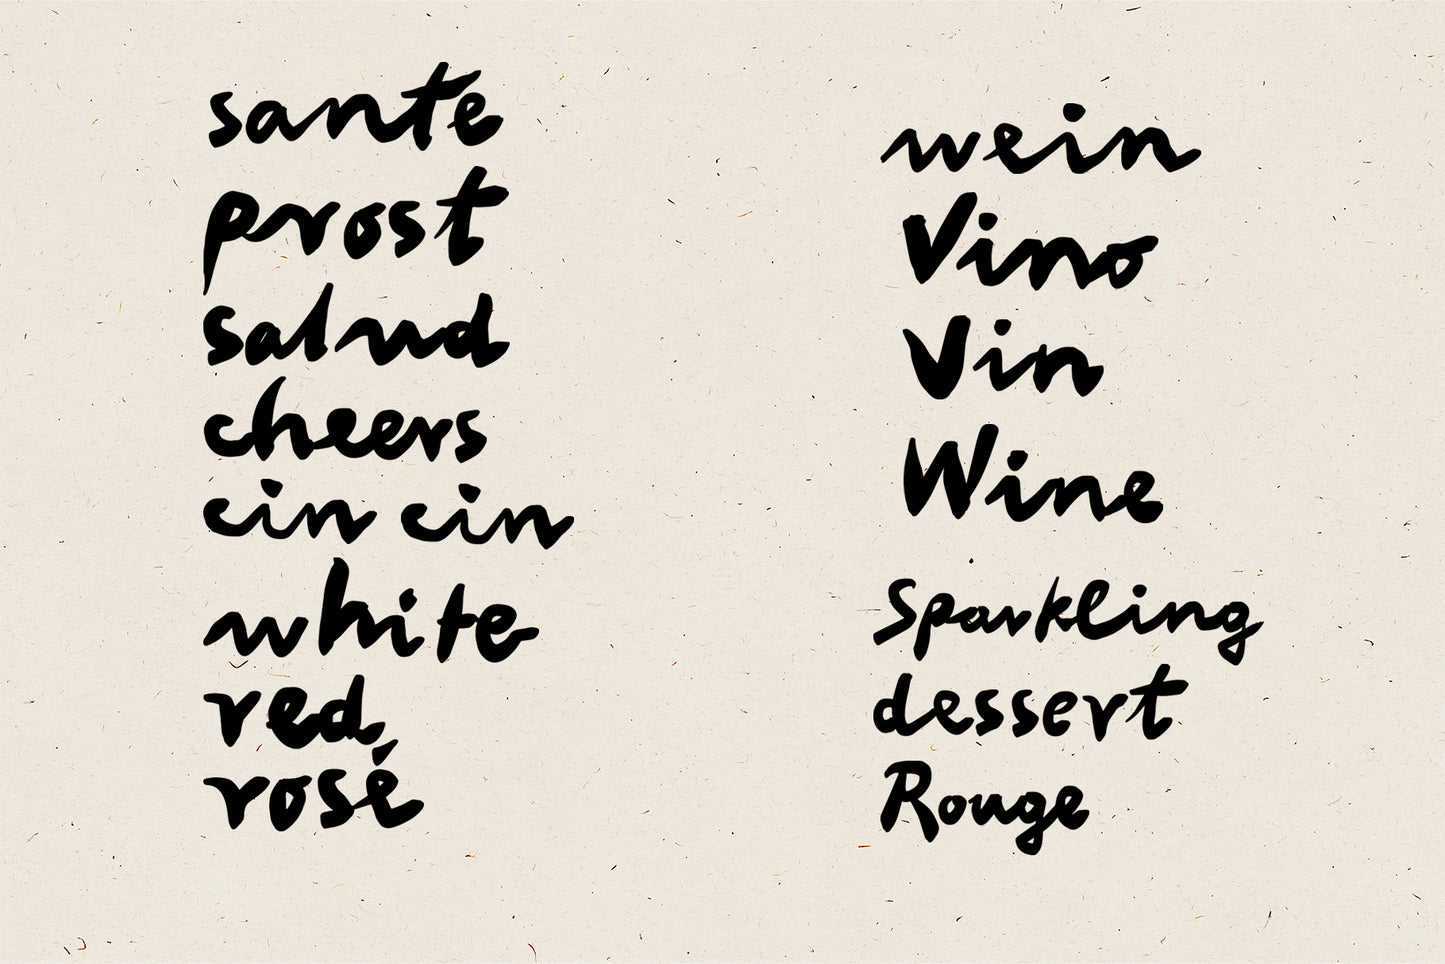 sante
prost
salud
cheers
cin cin
white
red
rosé
wein
Vino
Vin
Wine
Sparkling
dessert
Rouge